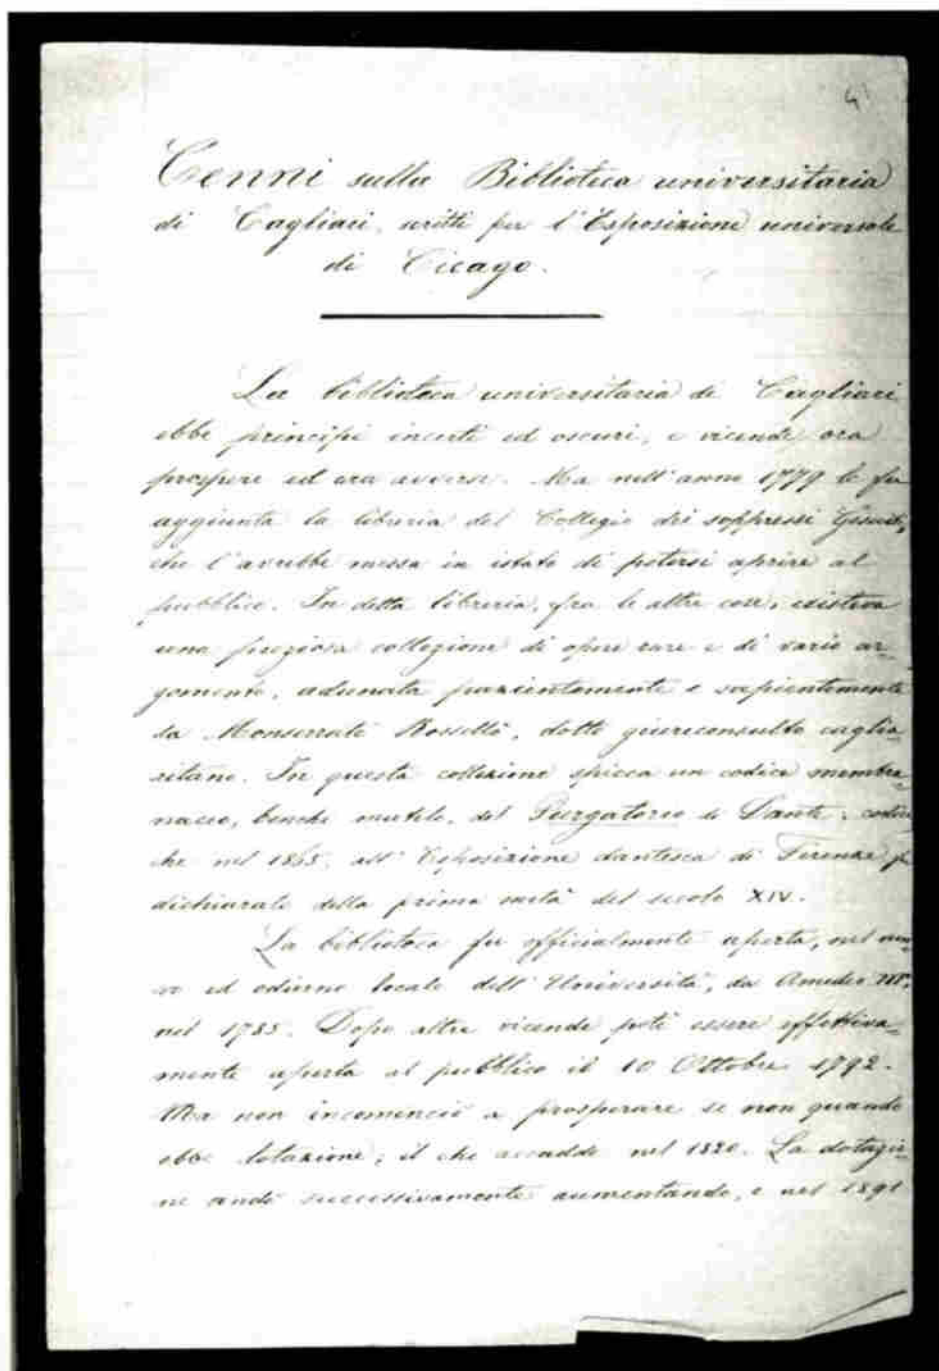 41
Cenni sulla Biblioteca universitaria
di Cagliari, scritti per l'Esposizione universale
di Cicago.
La biblioteca universitaria di Cagliari
ebbe principî incerti ed oscuri, e vicende ora
prospere ed ora avverse. Ma nell'anno 1779 le fu
aggiunta la libreria del Collegio dei soppressi Gesuiti,
che l'avrebbe messa in istato di potersi aprire al
pubblico. In detta libreria, fra le altre cose, esisteva
una pregiosa collezione di opere rare e di vario ar-
gomento, adunata pazientemente e sapientemente
da Monserrato Rosellò, dotto giureconsulto caglia-
ritano. In questa collezione spicca un codice membra-
naceo, benchè mutilo, del Purgatorio di Dante, codice
che nel 1865, all'Esposizione dantesca di Firenze fu
dichiarato della prima metà del secolo XIV.
La biblioteca fu officialmente aperta, nel nuo-
vo ed odierno locale dell'Università, da Amedeo III,
nel 1785. Dopo altre vicende potè essere effettiva-
mente aperta al pubblico il 10 Ottobre 1792.
Ma non incominciò a prosperare se non quando
ebbe dotazione; il che accadde nel 1820. La dotazio-
ne andò successivamente aumentando, e nel 1891